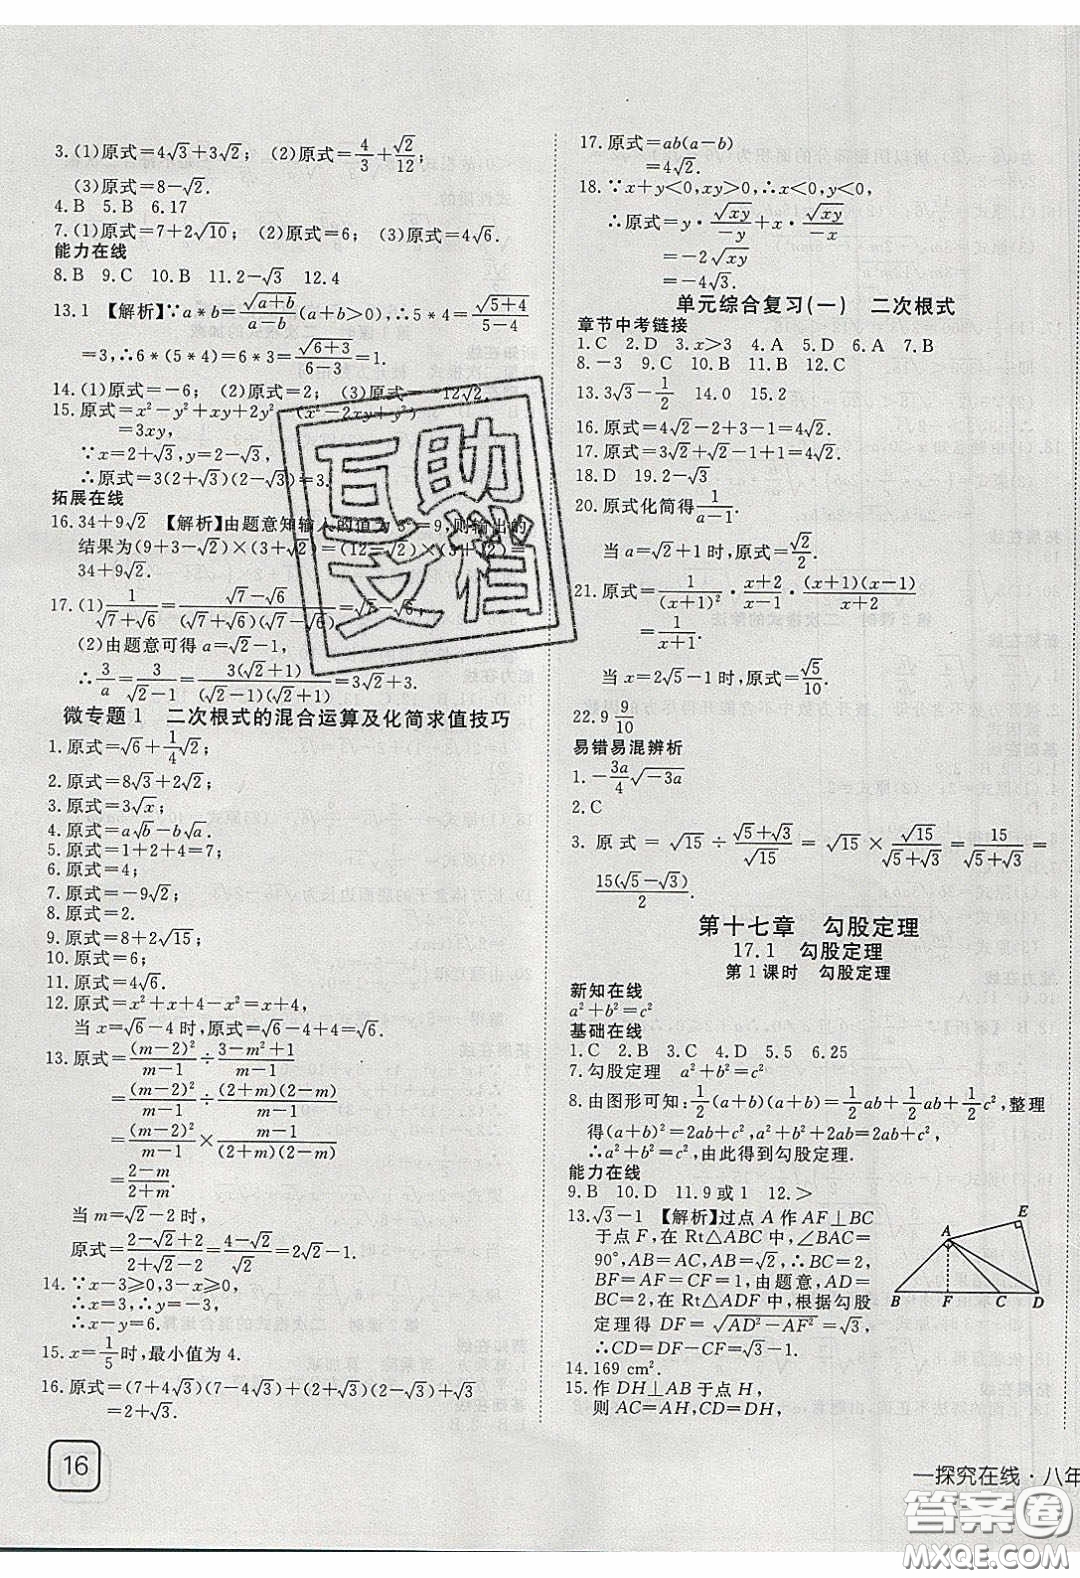 3.(1)原式=4√3+3√2; (2)原式=4/3+√2/12;
(3)原式=8-√2.
4.B 5.B 6.17
7.(1)原式=7+2√10; (2)原式=6; (3)原式=4√6.
能力在线
8.B 9.C 10.B 11.2-√3 12.4
13.1 【解析】∵a*b=√(a+b)/(a-b)(a+b>0),∴5*4=√(5+4)/(5-4)
=3,∴6*(5*4)=6*3=√(6+3)/(6-3)=1.
14.(1)原式=-6; (2)原式=2; (3)原式=-12√2.
15.原式=x²-y²+xy+2y²-(x²-2xy+y²)
=3xy,
∵x=2+√3,y=2-√3,
∴原式=3(2+√3)(2-√3)=3.
拓展在线
16.34+9√2 【解析】由题意知输入的值为3²=9,则输出的
结果为(9+3-√2)×(3+√2)=(12-√2)×(3+√2)=
34+9√2.
17.(1)1/(√7+√6)=(√7-√6)/((√7+√6)(√7-√6))=√7-√6;
(2)由题意可得a=√2-1,
∴3/a=3/(√2-1)=3(√2+1)/((√2-1)(√2+1))=3√2+3.
微专题1 二次根式的混合运算及化简求值技巧
1.原式=√6+1/4√2;
2.原式=8√3+2√2;
3.原式=3√x;
4.原式=a√b-b√a.
5.原式=1+2+4=7;
6.原式=4;
7.原式=-9√2;
8.原式=2.
9.原式=8+2√15;
10.原式=6;
11.原式=4√6.
12.原式=x²+x+4-x²=x+4,
当x=√6-4时,原式=√6-4+4=√6.
13.原式=(m-2)²/(m-1)÷(3-m²+1)/(m-1)
=(m-2)²/(m-1)÷(2+m)(2-m)/(m-1)
=(m-2)²/(m-1)×(m-1)/((2+m)(2-m))
=(2-m)/(2+m).
当m=√2-2时,
原式=(2-√2+2)/(2+√2-2)=(4-√2)/√2=2√2-1.
14.∵x-3≥0,3-x≥0,
∴x=3,∴y=-3,
∴x-y=6.
15.x=1/5时,最小值为4.
16.原式=(7+4√3)(7-4√3)+(2+√3)(2-√3)+√3
=2+√3.
16
17.原式=ab(a-b)
=4√2.
18.∵x+y<0,xy>0,∴x<0,y<0,
∴原式=y·√xy/-y+x·√xy/-x
=-2√xy
=-4√3.
单元综合复习(一) 二次根式
章节中考链接
1.C 2.D 3.x>3 4.A 5.D 6.A 7.B
8.-3 9.C 10.B 11.B 12.C
13.3√3-1/2 14.0 15.2
16.原式=4√2-2+3-1=4√2.
17.原式=3√2+√2-1+1=4√2.
18.D 19.2-√3
20.原式化简得1/(a-1).
当a=√2+1时,原式=√2/2.
21.原式=1/(x+1)²·(x+2)/(x-1)·(x+1)(x-1)/(x+2)
=1/(x+1).
当x=2√5-1时,原式=√5/10.
22.9 9/10
易错易混辨析
1.-3a/4√-3a
2.C
3.原式=√15÷(√5+√3)/√15=√15×√15/(√5+√3)=15/(√5+√3)=
15(√5-√3)/2.
第十七章 勾股定理
17.1 勾股定理
第1课时 勾股定理
新知在线
a²+b²=c²
基础在线
1.C 2.B 3.C 4.D 5.5 6.25
7.勾股定理 a²+b²=c²
8.由图形可知:1/2(a+b)(a+b)=1/2ab+1/2ab+1/2c²,整理
得(a+b)²=2ab+c²,a²+b²+2ab=2ab+c²,
∴a²+b²=c².由此得到勾股定理.
能力在线
9.B 10.D 11.9或1 12.>
13.√3-1 【解析】过点A作AF⊥BC
于点F,在Rt△ABC中,∠BAC=
90°,AB=AC,AB=√2,∴BC=2,
BF=AF=CF=1,由题意,AD=
BC=2,在Rt△ADF中,根据勾股
定理得DF=√(AD²-AF²)=√3,
∴CD=DF-CF=√3-1.
E
A
B F C D
14.169 cm².
15.作DH⊥AB于点H,
则AC=AH,CD=DH,
一探究在线·八年
互助
文档
答案圈
MXQE.COM